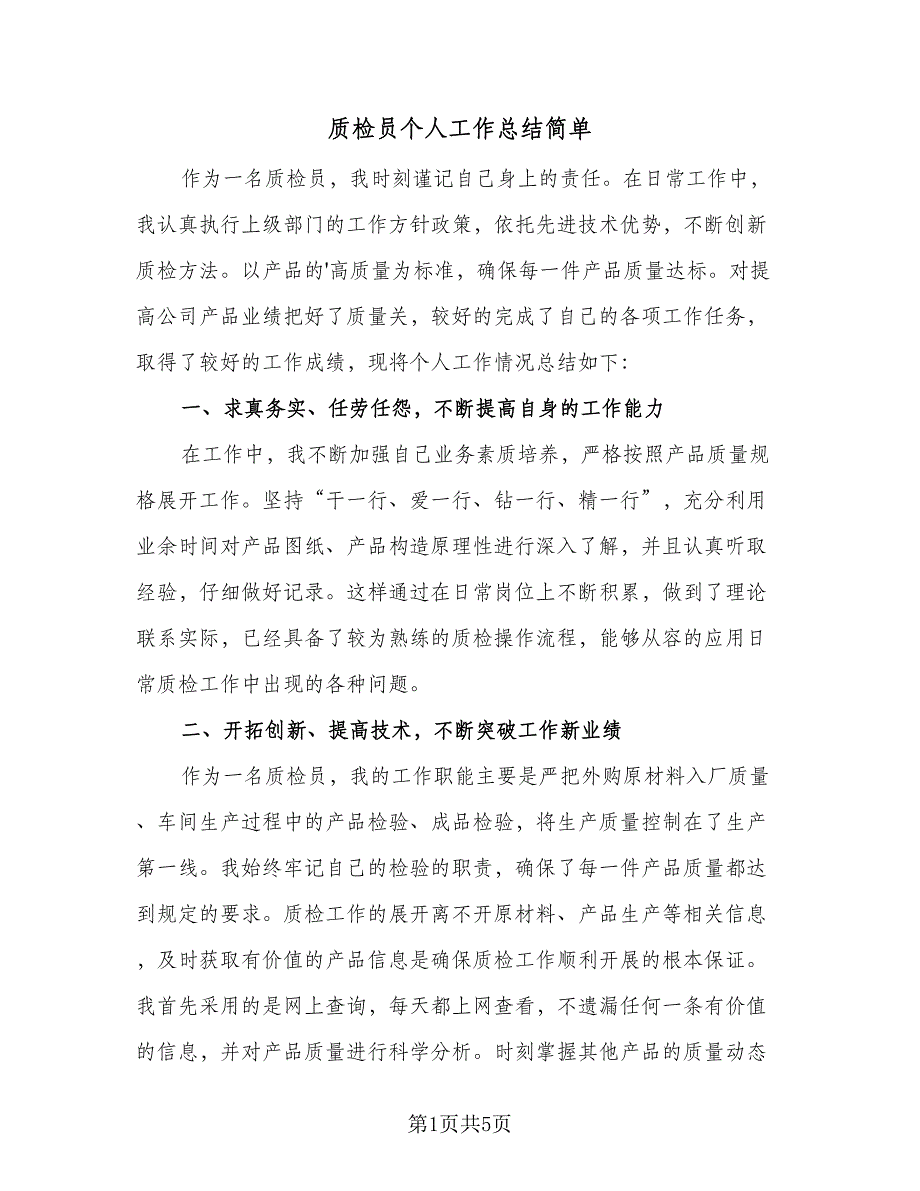 质检员个人工作总结简单
作为一名质检员，我时刻谨记自己身上的责任。在日常工作中，
我认真执行上级部门的工作方针政策，依托先进技术优势，不断创新
质检方法。以产品的'高质量为标准，确保每一件产品质量达标。对提
高公司产品业绩把好了质量关，较好的完成了自己的各项工作任务，
取得了较好的工作成绩，现将个人工作情况总结如下：
一、求真务实、任劳任怨，不断提高自身的工作能力
在工作中，我不断加强自己业务素质培养，严格按照产品质量规
格展开工作。坚持“干一行、爱一行、钻一行、精一行”，充分利用
业余时间对产品图纸、产品构造原理性进行深入了解，并且认真听取
经验，仔细做好记录。这样通过在日常岗位上不断积累，做到了理论
联系实际，已经具备了较为熟练的质检操作流程，能够从容的应用日
常质检工作中出现的各种问题。
二、开拓创新、提高技术，不断突破工作新业绩
作为一名质检员，我的工作职能主要是严把外购原材料入厂质量
、车间生产过程中的产品检验、成品检验，将生产质量控制在了生产
第一线。我始终牢记自己的检验的职责，确保了每一件产品质量都达
到规定的要求。质检工作的展开离不开原材料、产品生产等相关信息
，及时获取有价值的产品信息是确保质检工作顺利开展的根本保证。
我首先采用的是网上查询，每天都上网查看，不遗漏任何一条有价值
的信息，并对产品质量进行科学分析。时刻掌握其他产品的质量动态
第1页共5页